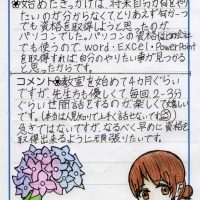 ❀始めたきっかけは、将来自分が何をや
りたいのか分からなくてとりあえず何か一つ
でも資格を取得しようと思ったのが
パソコンでした。パソコンの資格はどの会社
でも使うので、word・EXCEL・PowerPoint
を取得すれば自分のやりたい事が見つかる
と思ったからです。
コメント❀教室を始めて4か月ぐらい
ですが先生方も優しくて毎回2-3分
ぐらい世間話をするのが楽しくて嬉しい
です。(本当は人見知りで上手く話せないです)
まだまですが、なるべく早めに資格を
取得出来るように頑張りたいです。